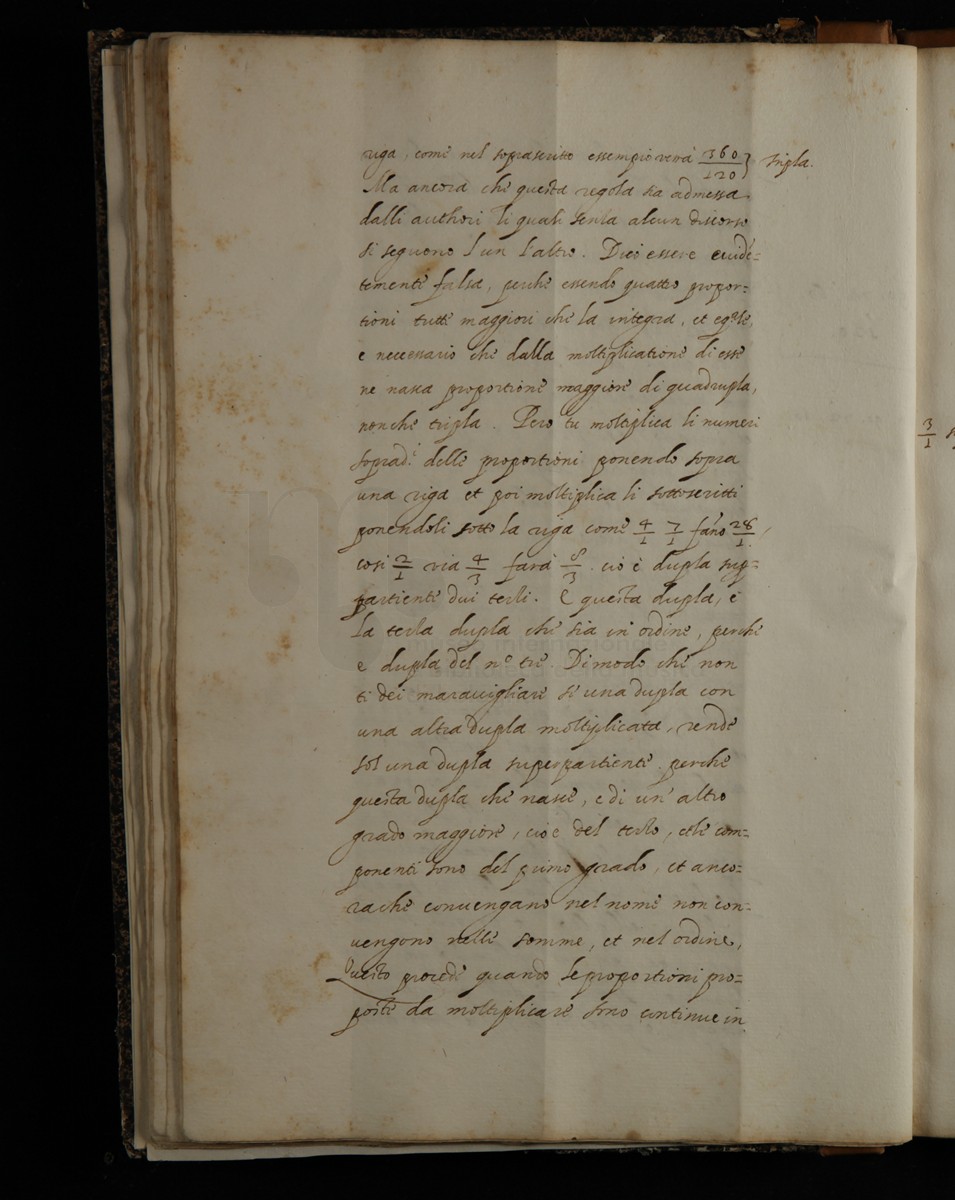 riga, come nel soprascritto essempio verà 360/120} tripla.
Ma ancora che questa regola sia admessa
dalli authori li quali senza alcun discorso
si seguono l'un l'altro. Dico essere euidē=
temente falsa, perche essendo quattro propor=
tioni tutte maggiori che la integra, et eq.le,
e necessario che dalla moltiplicatione di esse
ne nasca proportione maggiore di quadrupla,
non che tripla. Pero tu moltiplica li numeri
soprad.i delle proportioni ponendo sopra
una riga et poi moltiplica li sottoscritti
ponendoli sotto la riga come 4/1 7/1 fāno 28/1,
cosi 2/1 via 4/3 farà 8/3. cio è dupla sup=
partiente dui terzi. E questa dupla, è
la terza dupla che sia in ordine, perche
e dupla del n.o tre. Di modo che non
ti dei marauigliare se una dupla con
una altra dupla moltiplicata, rende
sol una dupla superpartiente. perche
questa dupla che nasce, e di un' altro
grado maggiore, cio è del terzo, et le com=
ponenti sono del primo grado, et anco=
ra che conuengano nel nome non con=
uengono nelle somme, et nel ordine,
Questo procede quando le proportioni pro=
poste da moltiplicare sono continue in
3/1